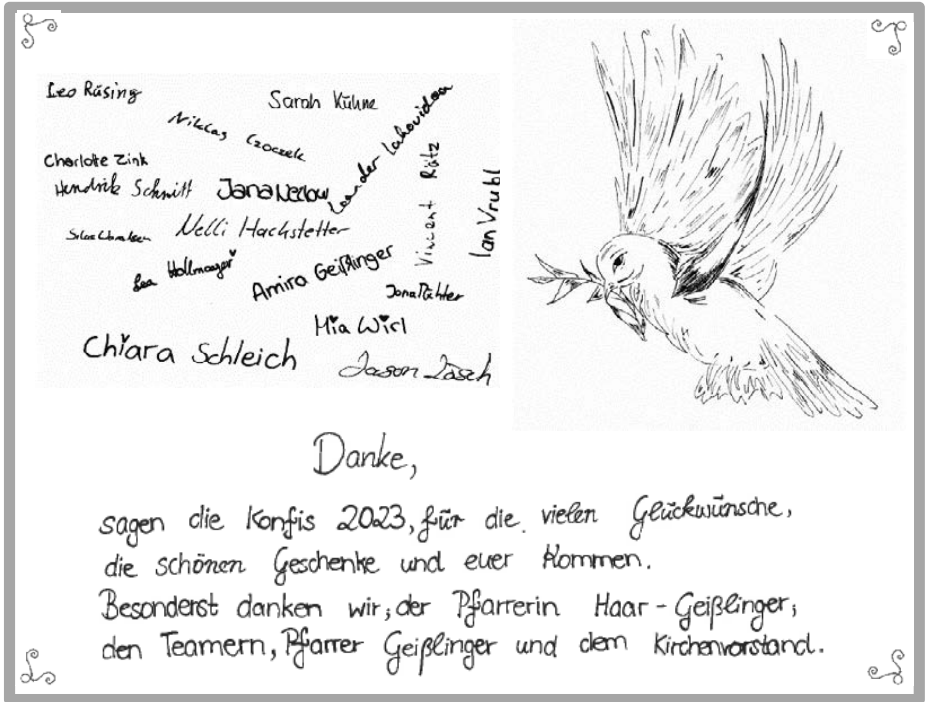 Leo Räsing
Sarah Kühne
Niklas Czoczek
Leander
Charlotte Zink
Vincent Rätz
Hendrik Schmitt
Jana
Ian Vrubl
Nelli Hachstetter
Lea Hollmayer
Amira Geißlinger
Jona
Mia Wirl
Chiara Schleich
Jason
Danke,
sagen die Konfis 2023, für die vielen Glückwünsche,
die schönen Geschenke und euer Kommen.
Besonderst danken wir, der Pfarrerin Haar-Geißlinger,
den Teamern, Pfarrer Geißlinger und dem Kirchenvorstand.